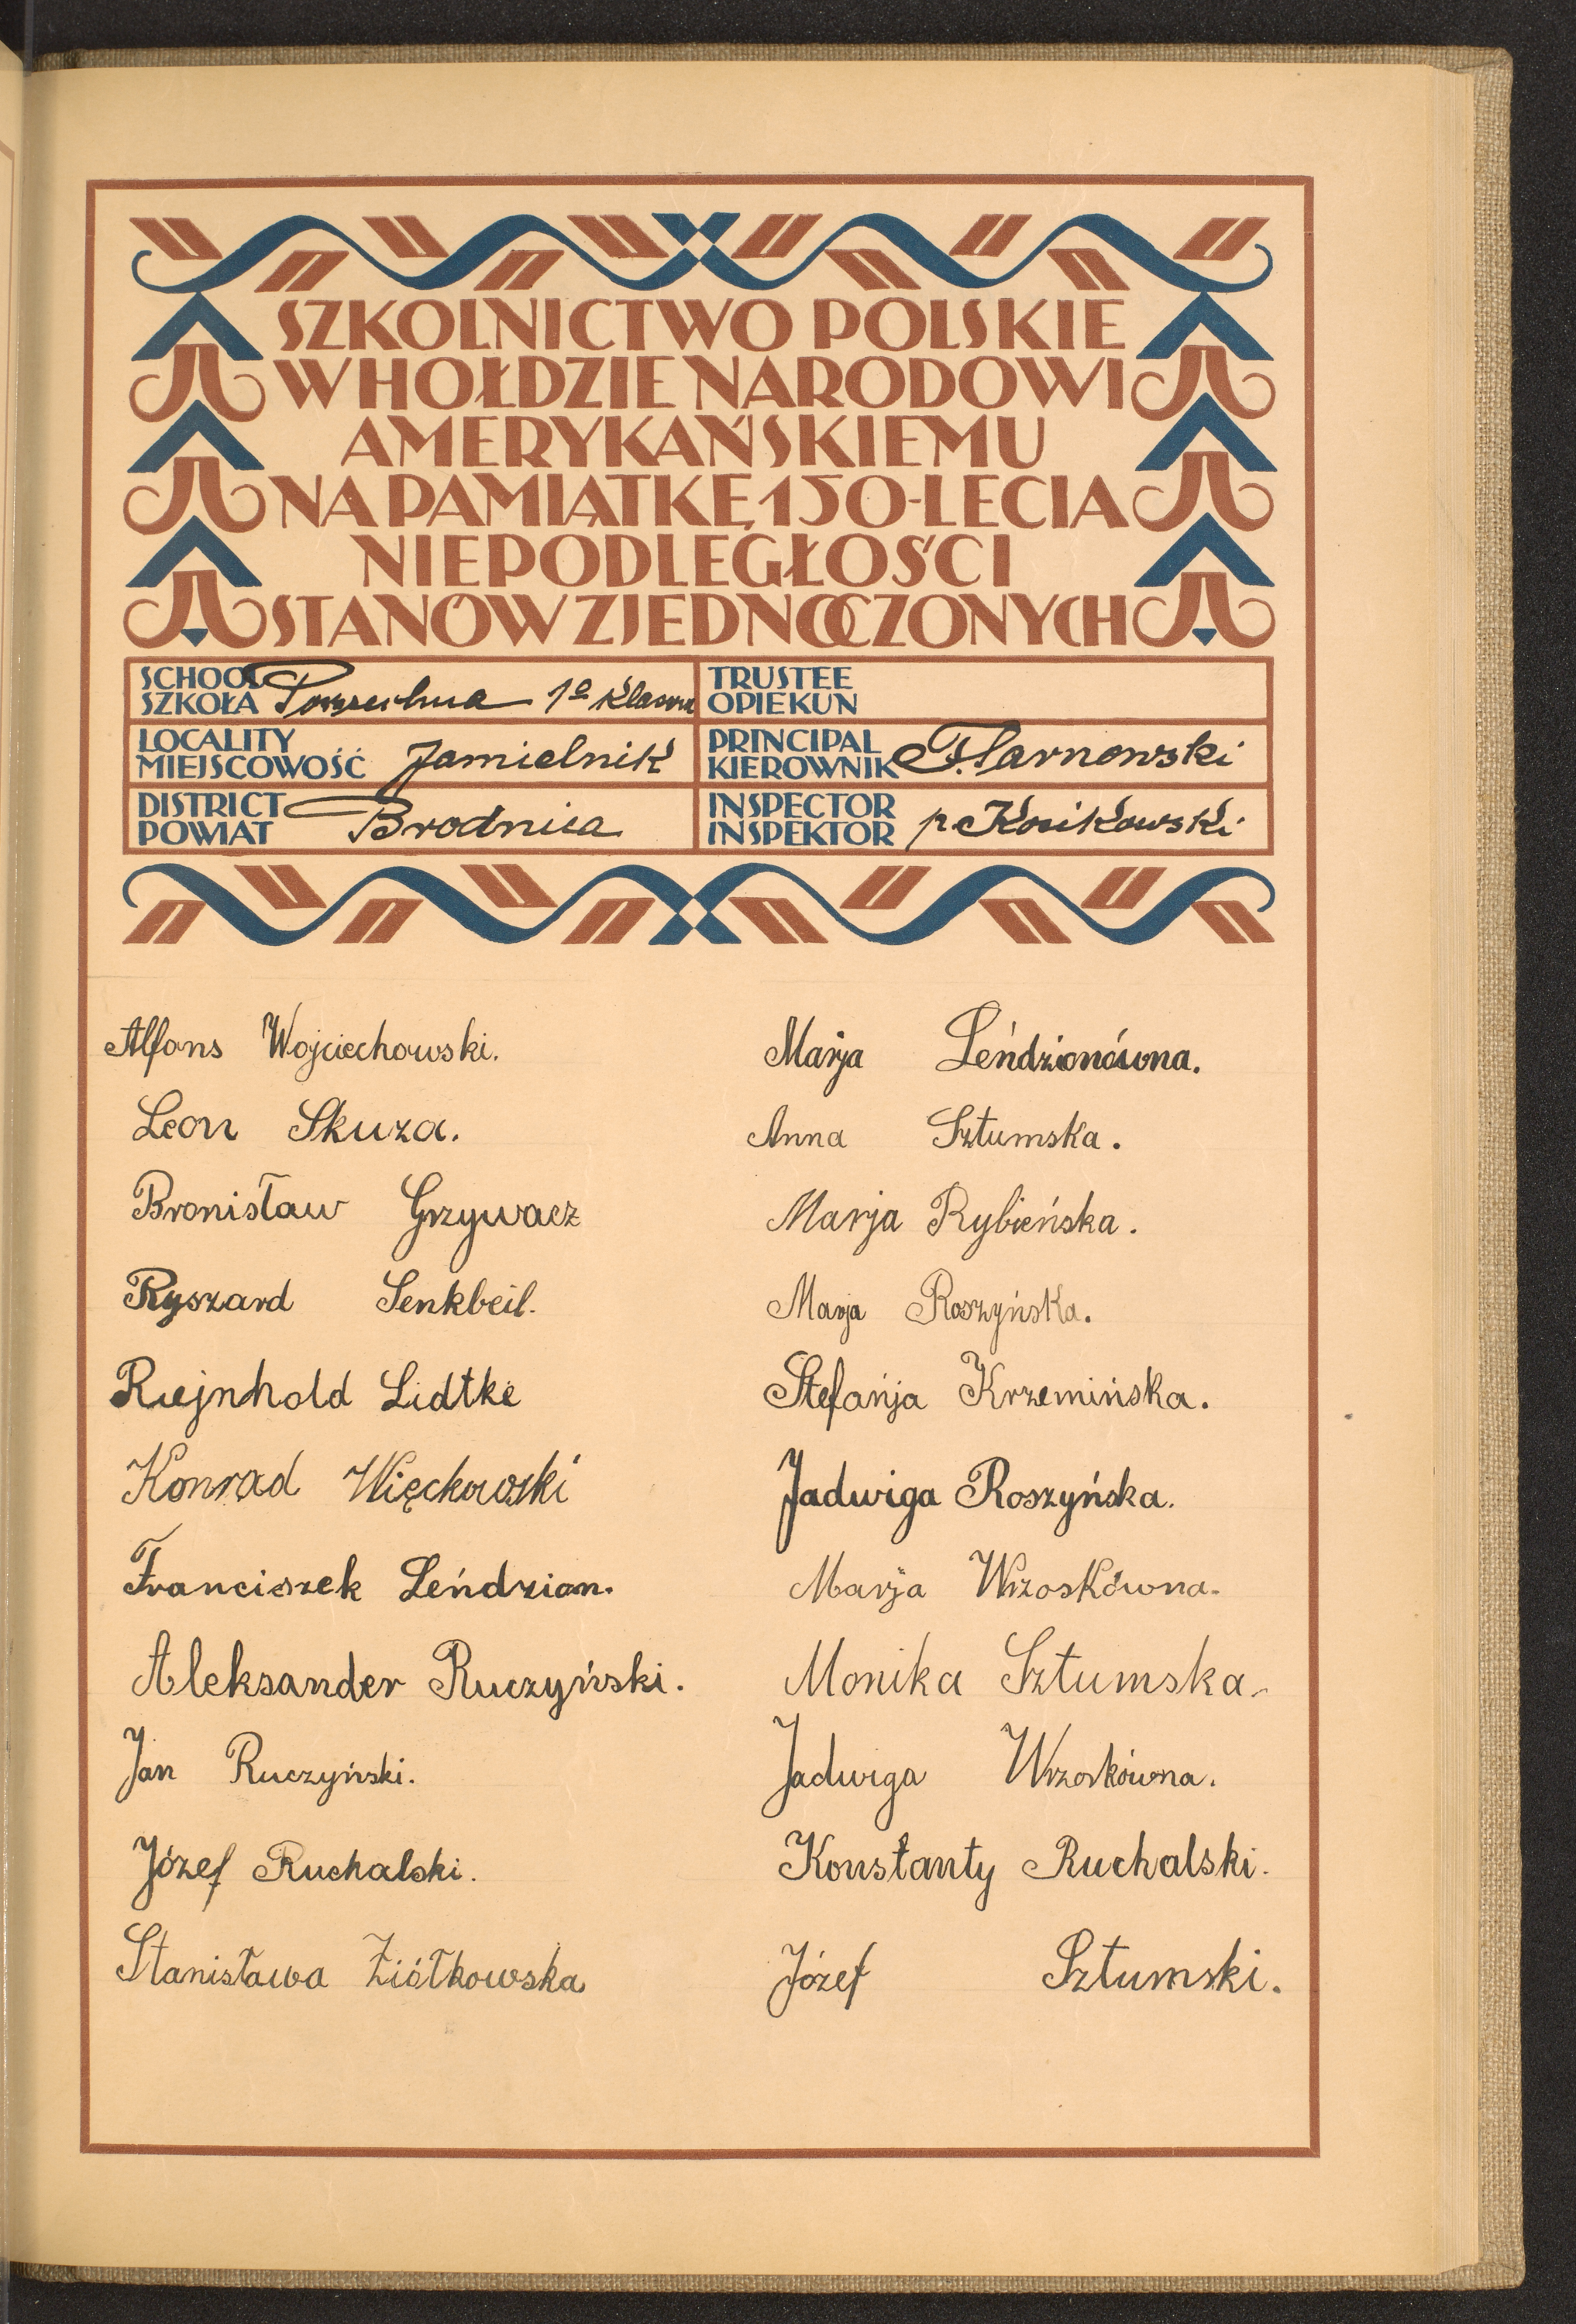 SZKOLNICTWO POLSKIE
W HOŁDZIE NARODOWI
AMERYKAŃSKIEMU
NA PAMIĄTKĘ 150-LECIA
NIEPODLEGŁOŚCI
STANÓW ZJEDNOCZONYCH
SCHOOL
SZKOŁA Powszechna 1º klasowa
TRUSTEE
OPIEKUN
LOCALITY
MIEJSCOWOŚĆ Jamielnik
PRINCIPAL
KIEROWNIK F. Tarnowski
DISTRICT
POWIAT Brodnica
INSPECTOR
INSPEKTOR p. Kosikowski
Alfons Wojciechowski.
Leon Skuza.
Bronisław Grzywacz
Ryszard Senkbeil.
Riejnhold Lidtke
Konrad Więckowski
Franciszek Leńdzian.
Aleksander Ruczyński.
Jan Ruczyński.
Józef Ruchalski.
Stanisława Ziółkowska
Marja Leńdzionówna.
Anna Sztumska.
Marja Rybieńska.
Marja Roszyńska.
Stefańja Krzemińska.
Jadwiga Roszyńska.
Marja Wrzoskówna.
Monika Sztumska.
Jadwiga Wrzoskówna.
Konstanty Ruchalski.
Józef Sztumski.